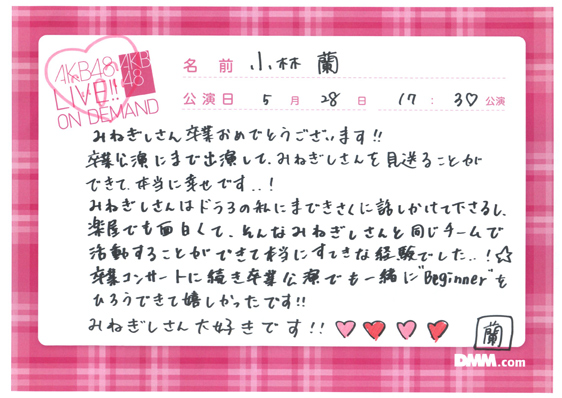 AKB48
LIVE!!
ON DEMAND
AKB
48
名前 小林 蘭
公演日 5月28日 17:30公演
みねぎしさん卒業おめでとうございます!!
卒業公演にまで出演して、みねぎしさんを見送ることが
できて、本当に幸せです..!
みねぎしさんはドラ3の私にまできさくに話しかけて下さるし、
楽屋でも面白くて、そんなみねぎしさんと同じチームで
活動することができて本当にすてきな経験でした..!☆
卒業コンサートに続き卒業公演でも一緒に"Beginner"を
ひろうできて嬉しかったです!!
みねぎしさん大好きです!!
蘭
DMM.com